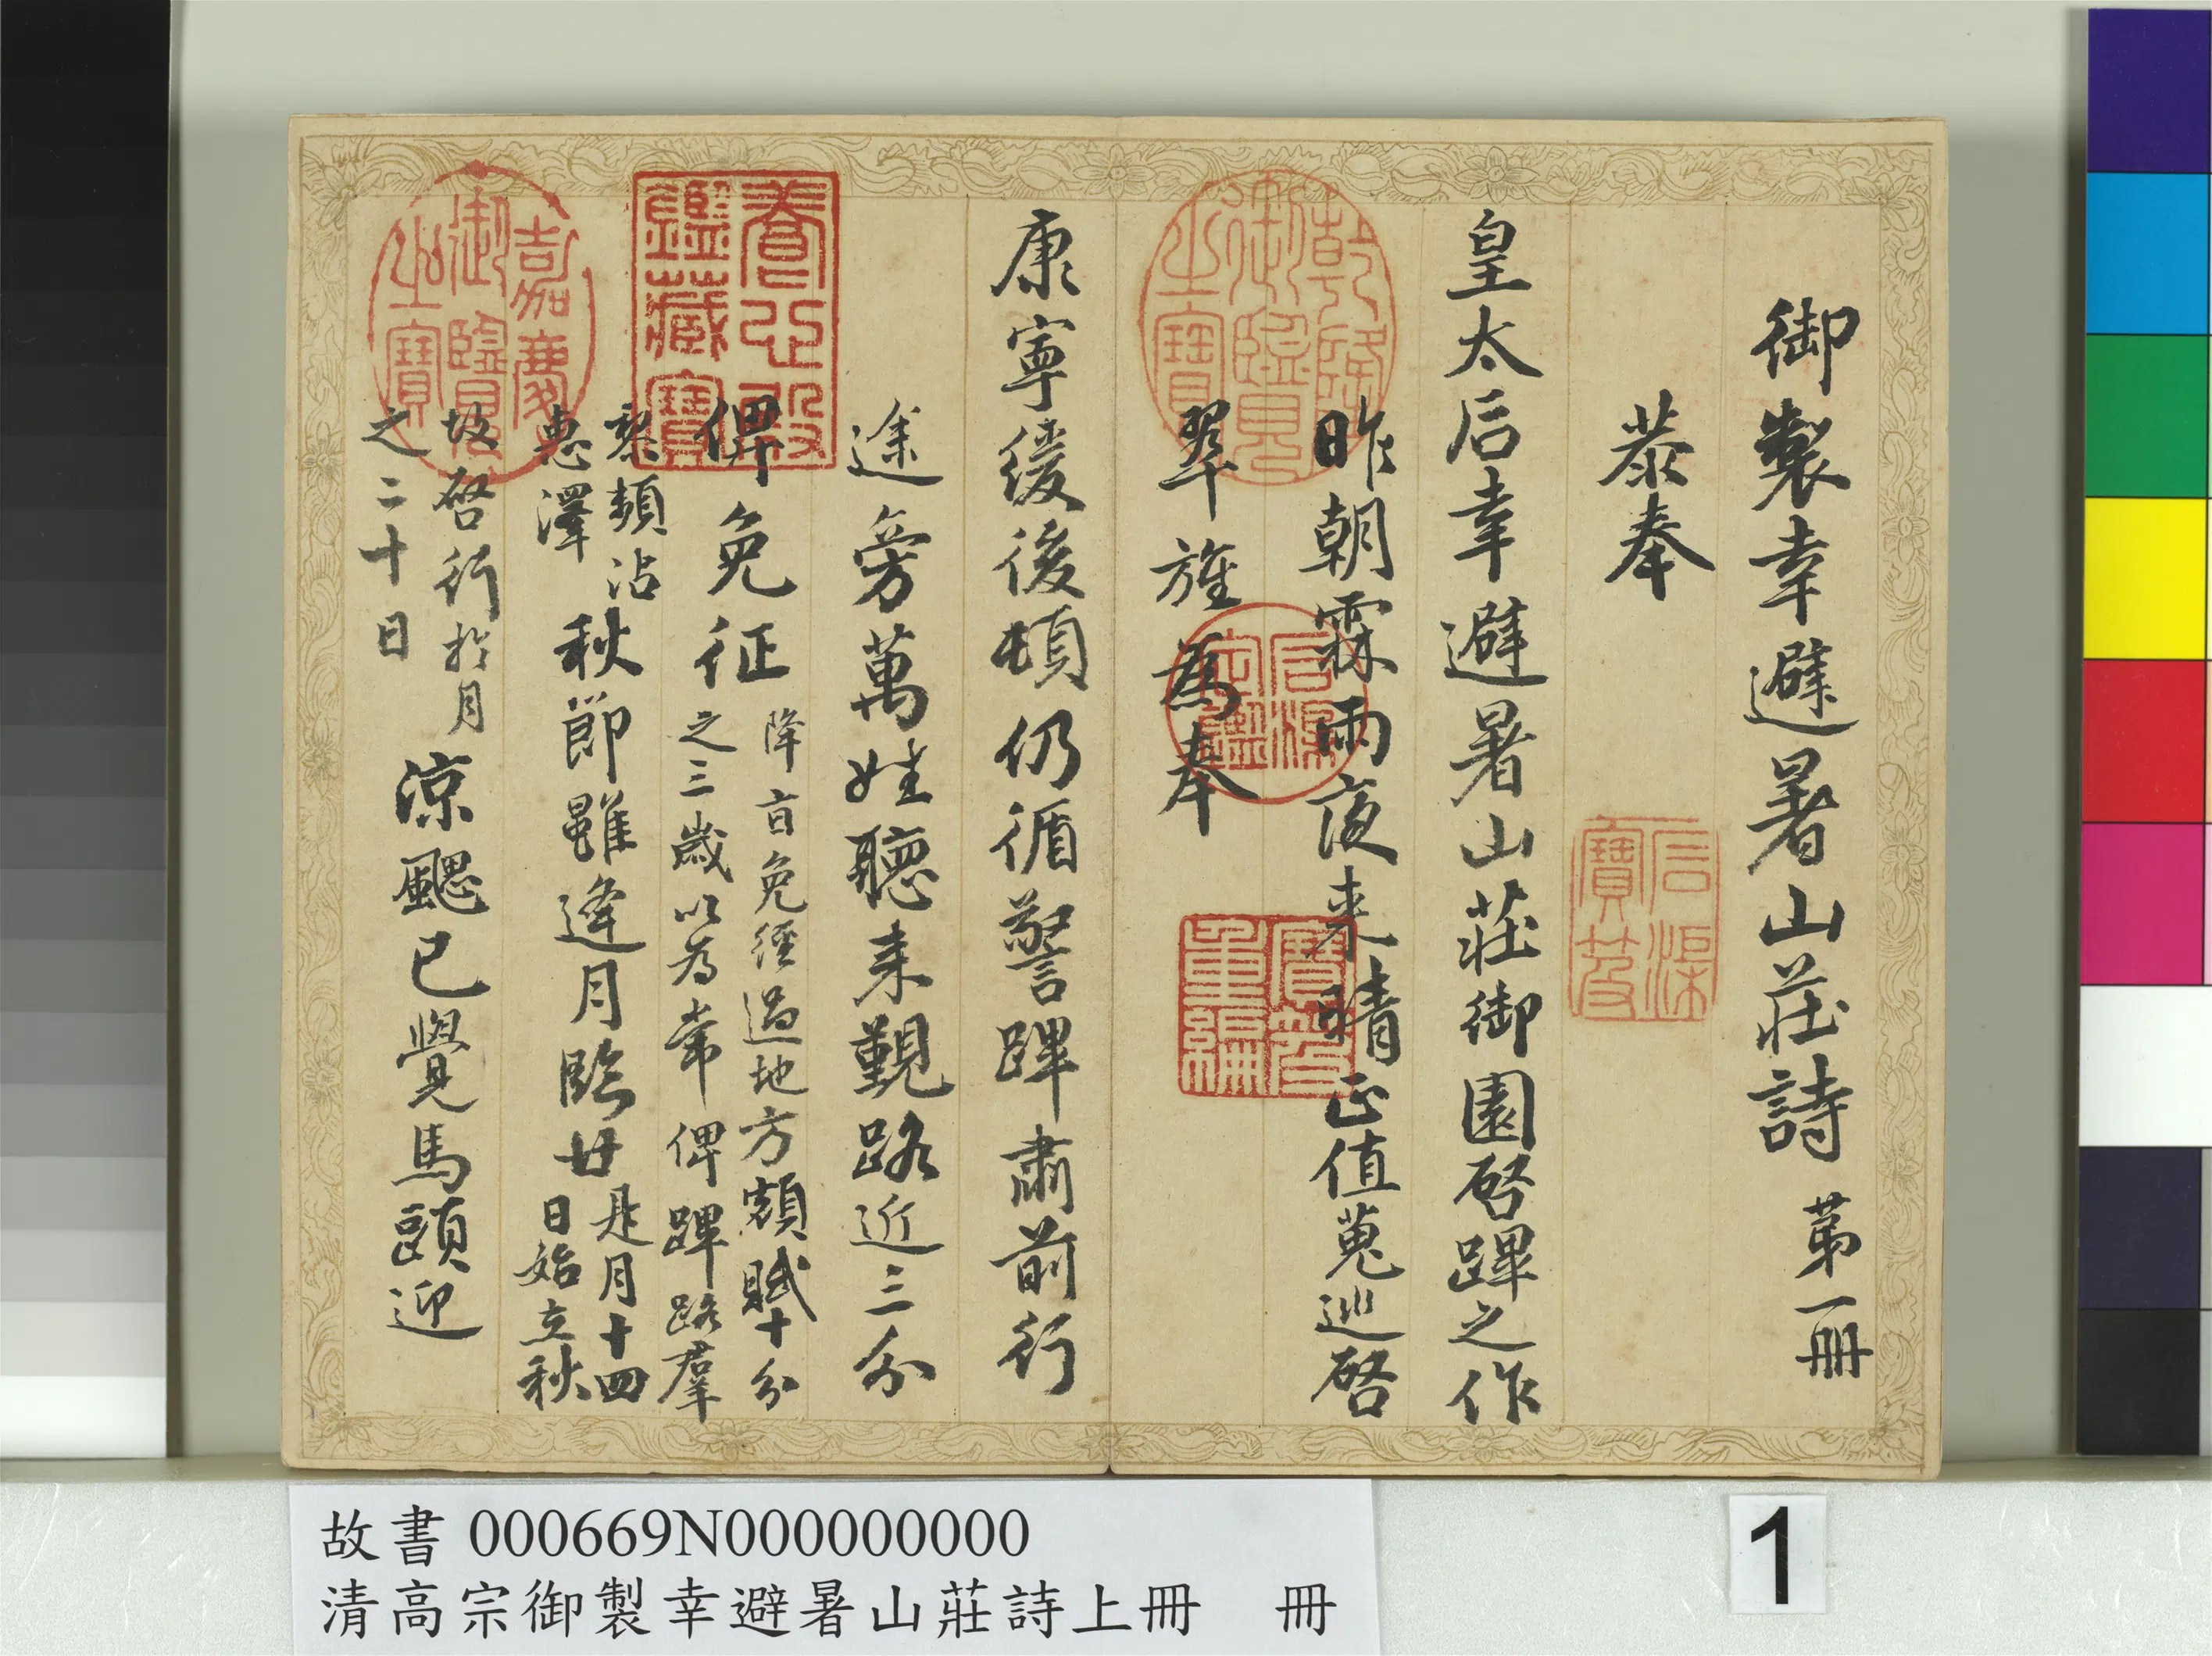 御製幸避暑山莊詩 第一冊
恭奉
皇太后幸避暑山莊御園啓蹕之作
昨朝霖雨夜来晴正值蒐巡啓
翠旌為奉
康寧緩後頓仍循警蹕肅前行
途旁萬姓聽来覲路近三分
俾免征
降旨免經過地方額賦十分
之三歲以為常俾蹕路羣
黎頻沾
惠澤
秋節雖逢月臨廿
是月十四
日始立秋
故啓行於月
之二十日
涼颸已覺馬頭迎
乾隆御覽之寶
石渠定鑑
寶笈重編
石渠寶笈
養心殿鑑藏寶
嘉慶御覽之寶
故書 000669N000000000
清高宗御製幸避暑山莊詩上冊 冊
1